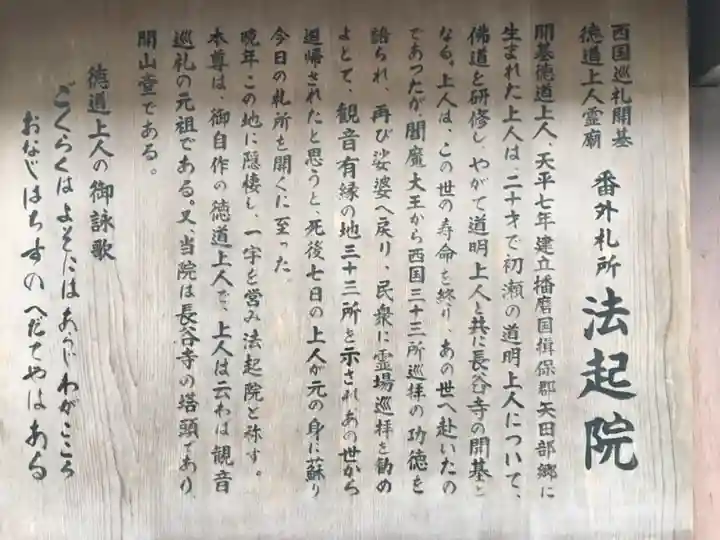 西国巡礼開基
徳道上人霊廟
番外札所 法起院
開基徳道上人、天平七年建立播磨国揖保郡矢田部郷に
生まれた上人は、二十才で初瀬の道明上人について、
佛道を研修し、やがて道明上人と共に長谷寺の開基と
なる。上人は、この世の寿命を終り、あの世へ赴いたの
であつたが閻魔大王から西国三十三所巡拝の功徳を
語られ、再び娑婆へ戻り、民衆に霊場巡拝を勧め
よとて、観音有縁の地三十三所を示されあの世から
退帰されたと思うと、死後七日の上人が元の身に蘇り
今日の札所を開くに至った。
晩年この地に隠棲し、一宇を営み法起院と称す。
本尊は、御自作の徳道上人で、上人は云わば観音
巡礼の元祖である。又、当院は長谷寺の塔頭であり、
開山堂である。
徳道上人の御詠歌
ごくらくはよそにはあらじわがこころ
おなじはちすのへだてやはある